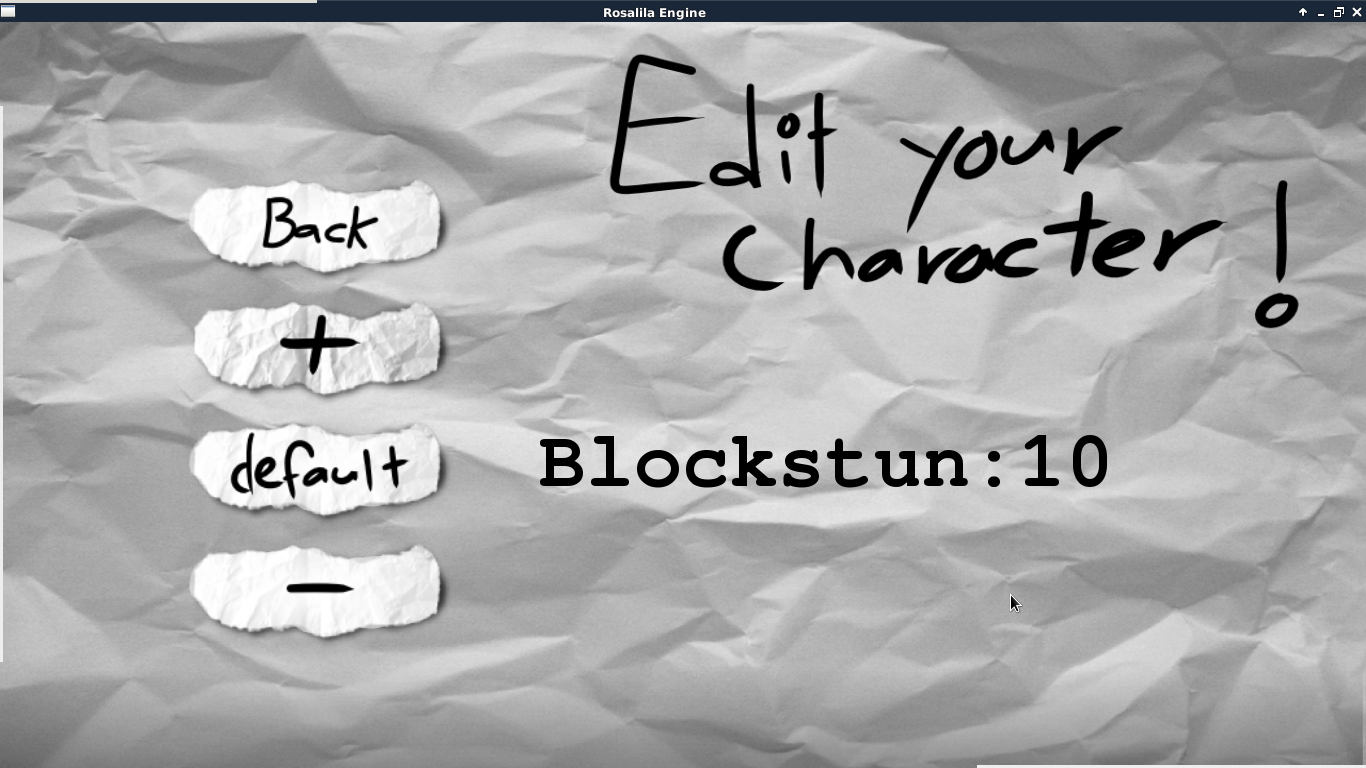 Rosalila Engine
Edit your
character!
Back
+
default
Blockstun:10
-